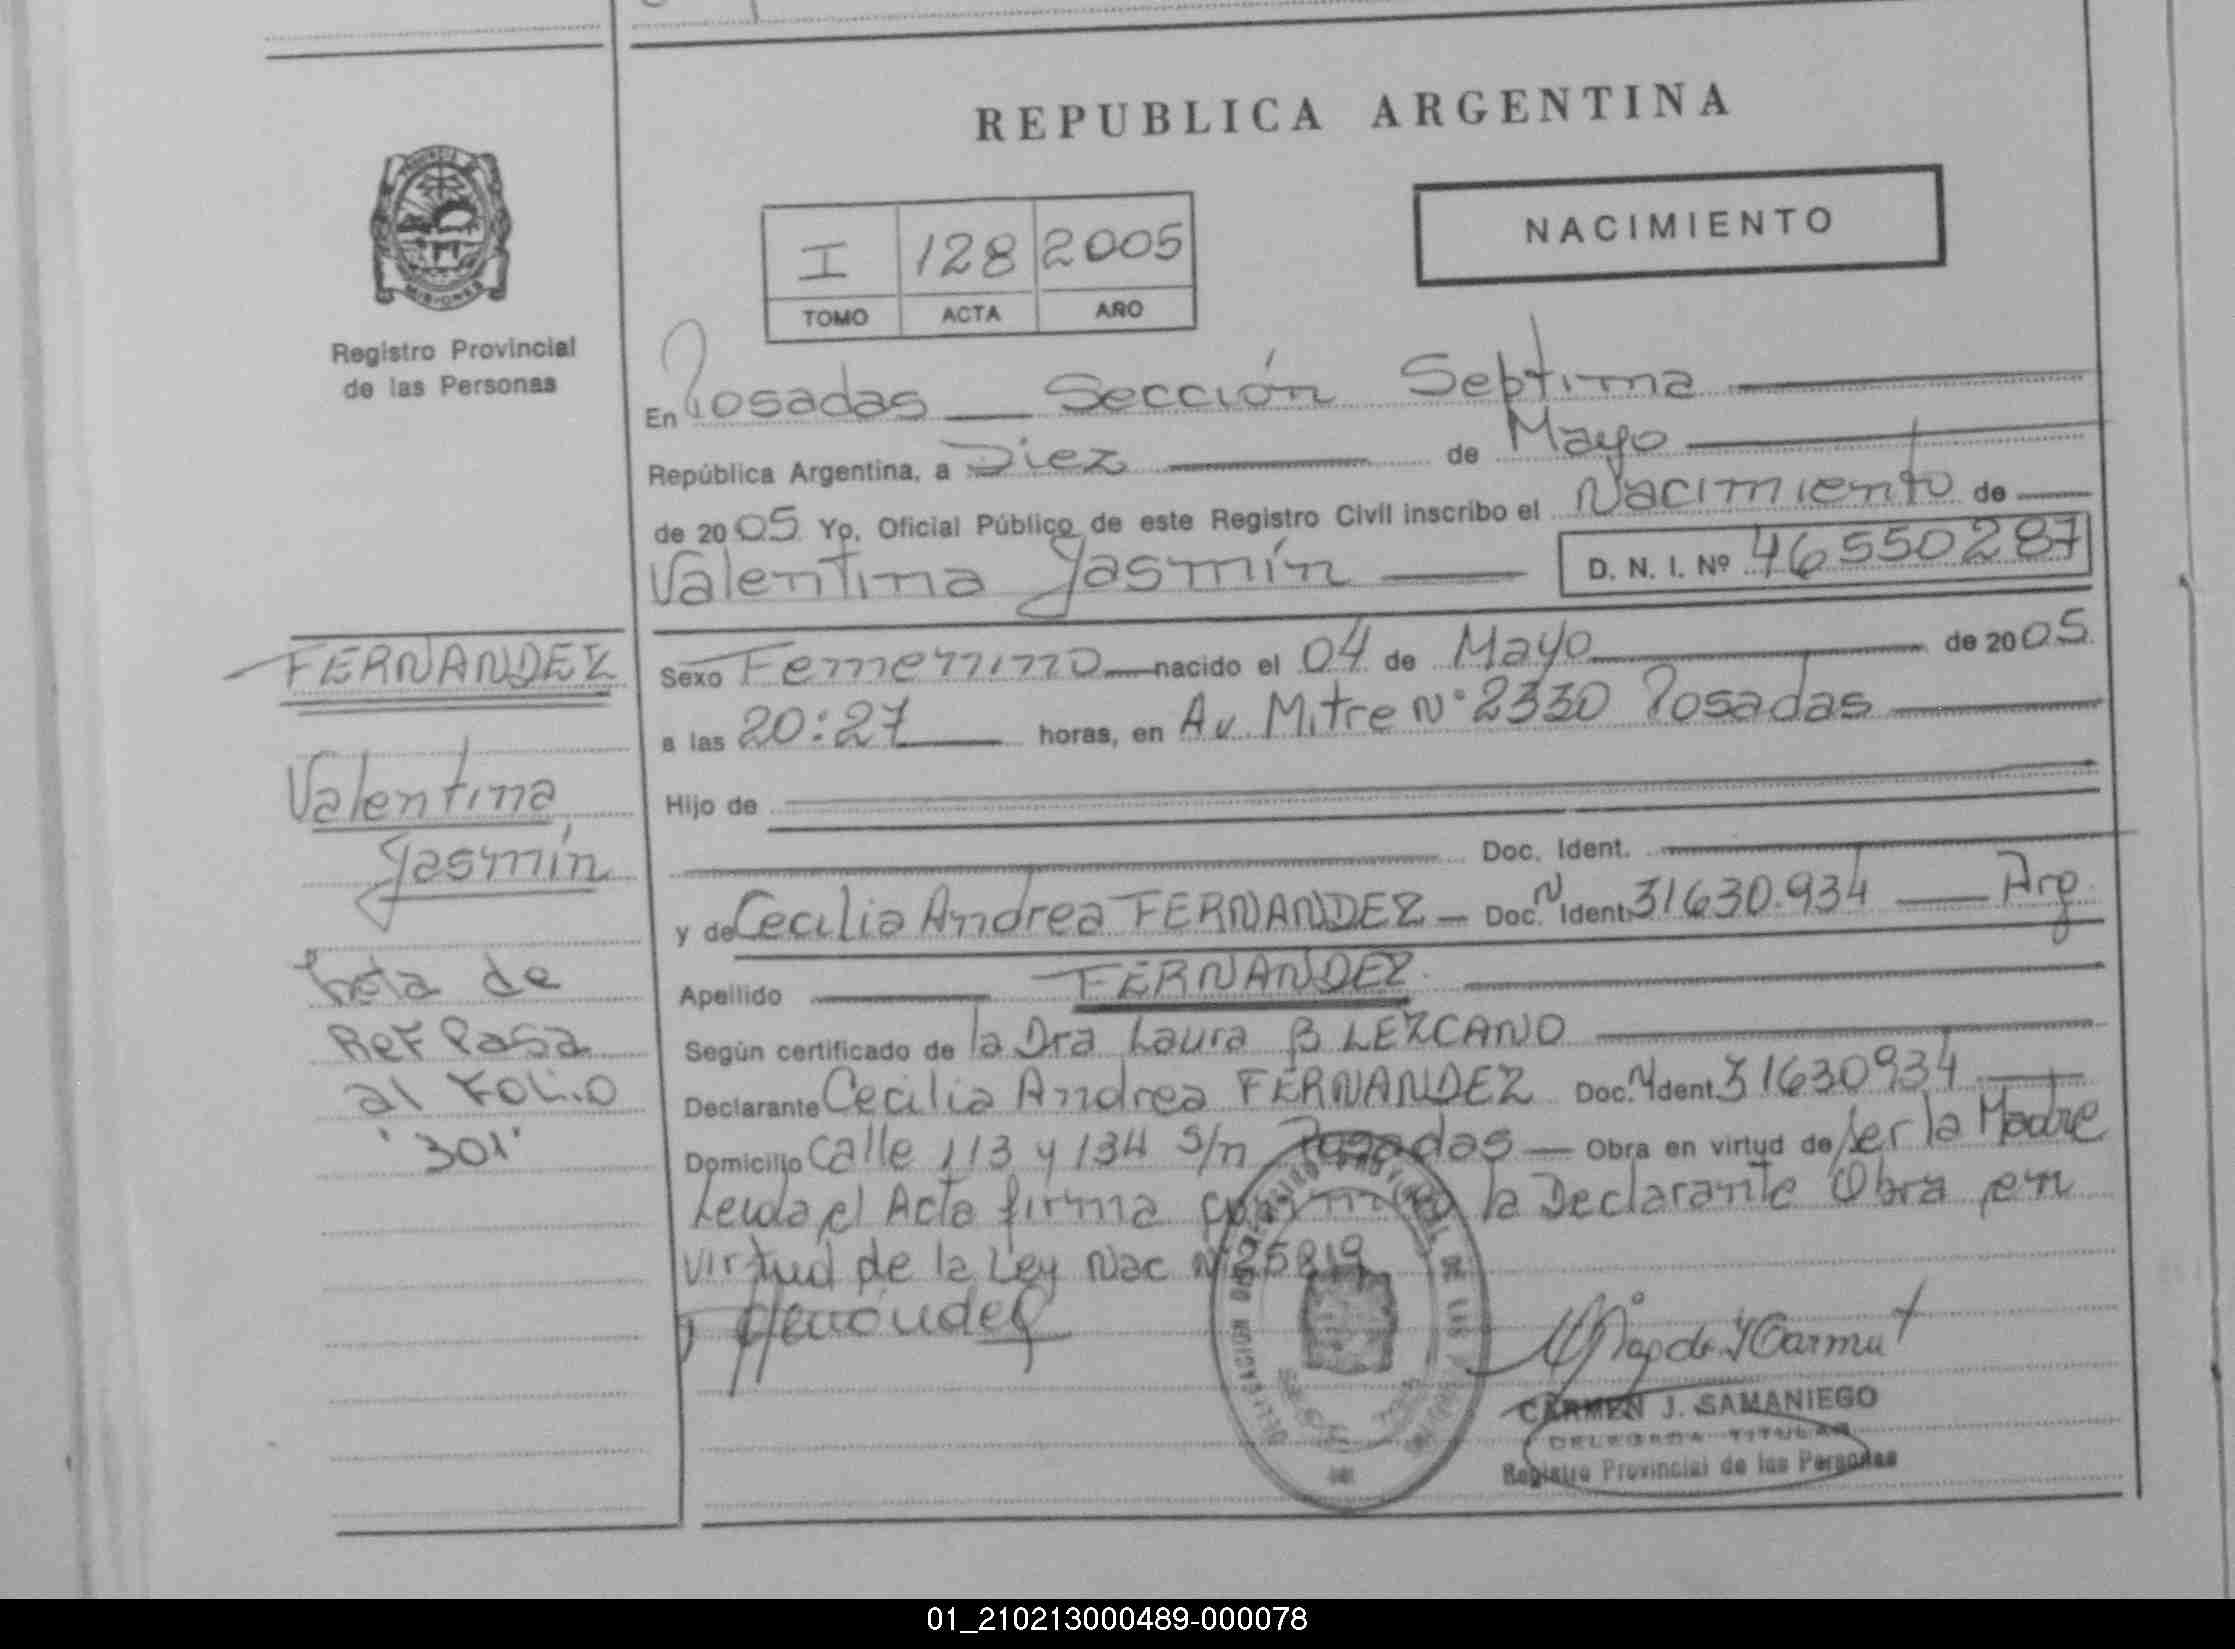 REPUBLICA ARGENTINA
NACIMIENTO
I 128 2005
TOMO ACTA AÑO
MISIONES
Registro Provincial
de las Personas
En Posadas Sección Septima
República Argentina, a Diez de Mayo
de 2005 Yo, Oficial Público de este Registro Civil inscribo el Nacimiento de
Valentina Yasmín D. N. I. Nº 46550287
Sexo Femenino nacido el 04 de Mayo de 2005
a las 20:27 horas, en Av. Mitre N° 2330 Posadas
Hijo de
Doc. Ident.
y de Cecilia Andrea FERNANDEZ Doc. N Ident. 31630.934 Arg.
Apellido FERNANDEZ
Según certificado de la Dra Laura B LEZCANO
Declarante Cecilia Andrea FERNANDEZ Doc. N Ident. 31630934
Domicilio Calle 113 y 134 S/n Posadas Obra en virtud de Ser la Madre
Leida el Acta firma la Declarante Obra en
virtud de la Ley Nac N 25819
FERNANDEZ
Valentina
Yasmín
Nota de
Ref Pasa
al Folio
"301"
CARMEN J. SAMANIEGO
DELEGADA TITULAR
Registro Provincial de las Personas
01_210213000489-000078